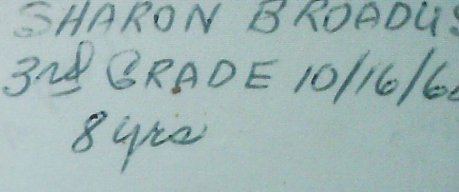 SHARON BROADUS
3rd GRADE 10/16/6
8 yrs